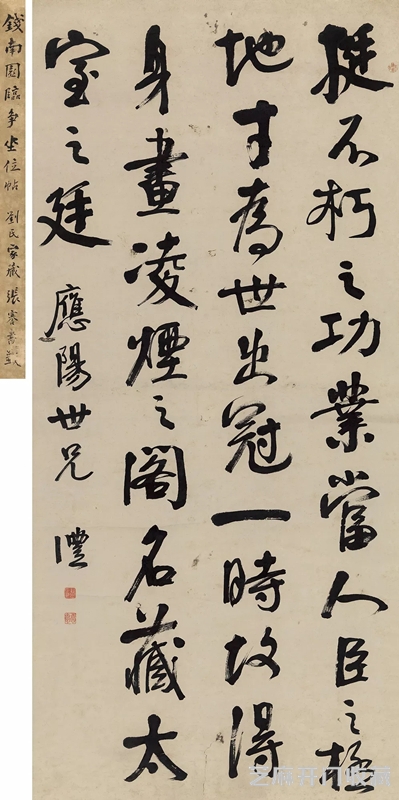 挺不朽之功業當人臣之極
地才為世出冠一時故得
身畫凌煙之閣名藏太
室之廷 應陽世兄 灃
錢南園臨爭坐位帖 劉氏家藏 張謇書籤
芝麻开门收藏